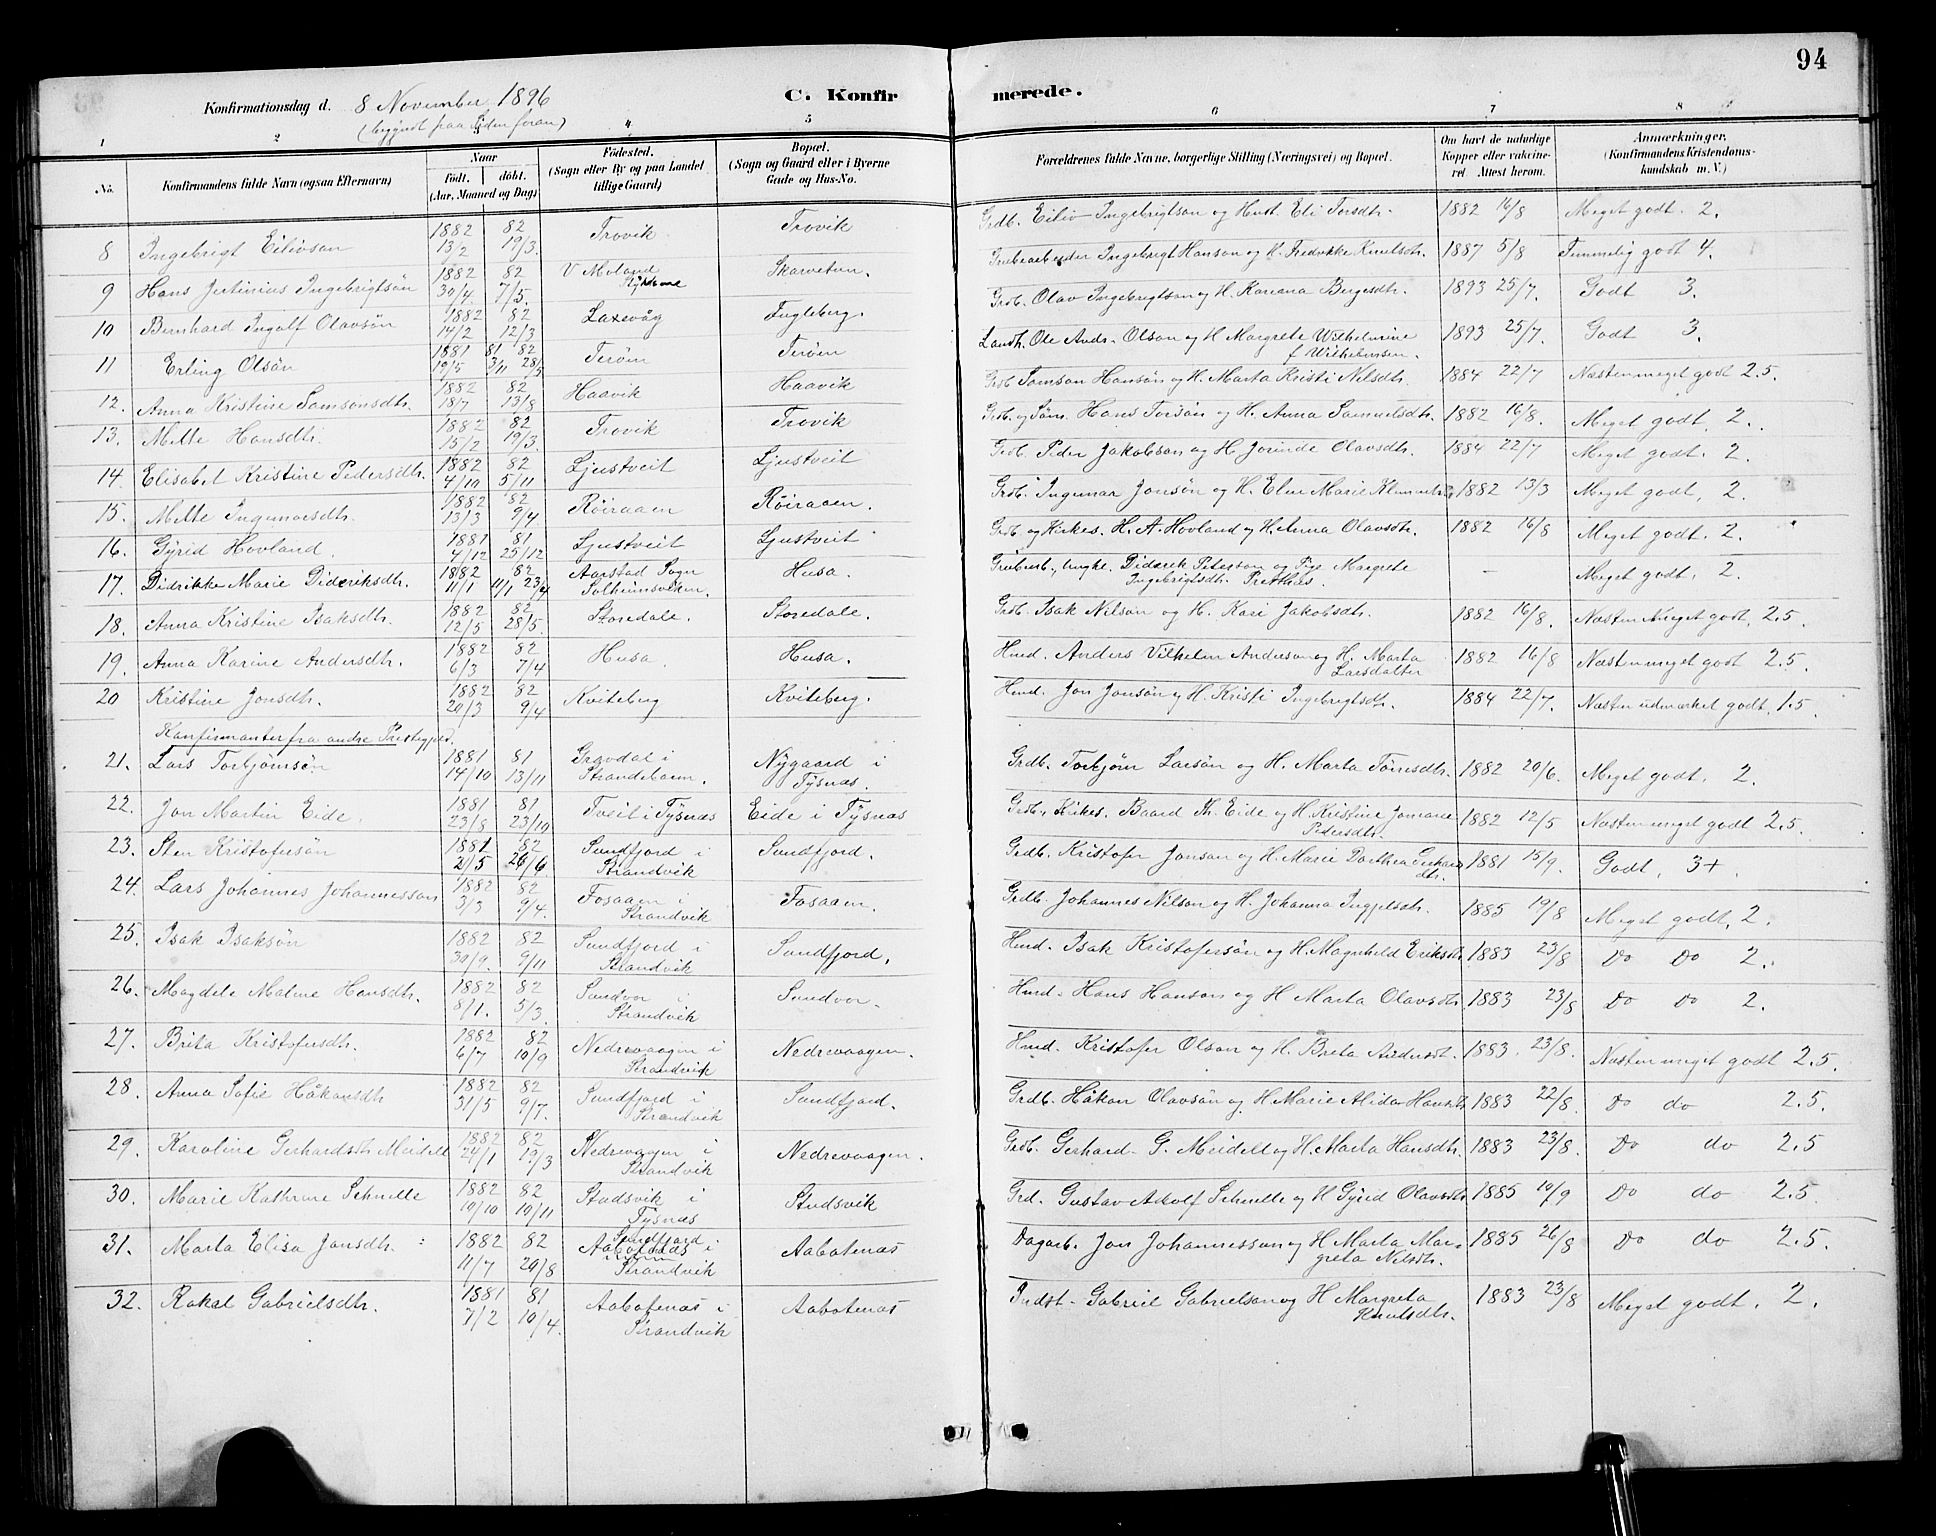 94
Konfirmationsdag d. 8 November 1896
(begyndt paa siden foran)
C. Konfirmerede.
1 2 3 4 5 6 7 8
No.
Konfirmandens fulde Navn (ogsaa Efternavn)
Naar født. døbt. (Aar, Maaned og Dag)
Fødested. (Sogn eller By og paa Landet tillige Gaard)
Bopæl. (Sogn og Gaard eller i Byerne Gade og Hus-No.
Forældrenes fulde Navne, borgerlige Stilling (Næringsvei) og Bopæl.
Om havt de naturlige Kopper eller vakcineret. Attest herom.
Anmærkninger. (Konfirmandens Kristendomskundskab m. V.)
8 Ingebrigt Eilivsøn 1882 13/2 82 19/3. Trovik Trovik Grdb. Eiliv Ingebrigtson og Hust. Eli Torsdtr. 1882 16/8 Meget godt. 2.
9 Hans Justinius Ingebrigtsøn 1882 30/4 82 7/5. V Moland Skarvetun. Grubearbeider Ingebrigt Hanson og H. Fredrikke Knutsdtr. 1887 5/8 Temmelig godt 4.
10 Bernhard Ingolf Olavsøn 1882 14/2 82 12/3 Laxevåg Fugleberg. Grdb. Olav Ingebrigtson og H. Kariana Bergesdtr. 1893 25/7. Godt 3.
11 Erling Olsøn 1881 19/5 81 3/11 82 28/5 Terøen Terøen Landh. Ole Andr. Olson og H Margrete Wilhelmine f Wilhelmsen. 1893 25/7. Godt 3.
12. Anna Kristine Samsonsdtr. 1882 18/7 82 13/8 Haavik Haavik Grdb Samson Hansøn og H. Marta Kristi Nilsdtr. 1884 22/7 Næsten meget godt 2.5.
13. Mette Hansdtr. 1882 15/2 82 19/3. Trovik Trovik Grdb. og Søm. Hans Torsøn og H. Anna Samuelsdtr. 1882 16/8. Meget godt. 2.
14. Elisabet Kristine Pedersdtr. 1882 4/10 82 5/11 Ljustveit Ljustveit Grdb. Peder Jakobson og H. Jorinde Olavsdtr. 1884 22/7 Meget godt. 2.
15. Mette Ingemarsdtr. 1882 13/3 82 9/4 Røiraaen Røiraaen. Grdb. Ingemar Jonsøn og H. Elen Marie 1882 13/3 Meget godt, 2.
16. Gyrid Hovland. 1881 4/12 81 25/12 Ljustveit Ljustveit Grdb og Kirkes. H. A. Hovland og H. Anna Olavsdtr. 1882 16/8 Meget godt. 2.
17. Didrikke Marie Dideriksdtr. 1882 11/1 82 11/1 23/4 Aarstad Sogn Solheimsviken. Husa. Ungk. Diderik Peterson og Pige Margrete Ingebrigtsdtr. – Meget godt. 2.
18. Anna Kristine Isaksdtr. 1882 12/5 82 28/5. Storedale. Storedale. Grdb. Isak Nilsøn og H. Kari Jakobsdtr. 1882 16/8. Næsten meget godt, 2.5
19. Anna Karine Andersdtr. 1882 6/3 82 7/4 Husa. Husa. Hmd. Anders Vilhelm Anderson og H. Marta Larsdatter 1882 16/8 Næsten meget godt 2.5.
20 Kristine Jonsdtr. 1882 20/3 82 9/4 Kviteberg Kviteberg. Hmd. Jon Jonsøn og H. Kristi Ingebrigtsdtr. 1884 22/7. Næsten udmærket godt, 1.5
Konfirmanter fra andre Prestegjeld.
21. Lars Torbjørnsøn 1881 14/10 81 13/11 Gravdal i Strandebarm. Nygaard i Tysnæs. Grdb. Torbjørn Larsøn og H. Marta Tørrisdtr. 1882 20/6. Meget godt. 2.
22. Jon Martin Eide. 1881 23/8 81 23/10 Tveit i Tysnæs Eide i Tysnæs Grdb. Kirkes. Baard Th. Eide og H Kristine Jomane Pedersdtr. 1882 12/5 Næsten meget godt 2.5.
23. Sten Kristofersøn 1882 2/5 82 26/6 Sundfjord i Strandvik Sundfjord. Grdb. Kristofer Jonsøn og H. Marie Dorthea 1881 15/9. Godt, 3+.
24. Lars Johannes Johannesson 1882 3/3 82 9/4. Fosaaen i Strandvik Fosaaen. Grdb. Johannes Nilson og H. Johanna 1885 19/8 Meget godt, 2.
25. Isak Isaksøn 1882 30/9. 82 9/11 Sundfjord i Strandvik Sundfjord. Hmd. Isak Kristofersøn og H. Magnhild Eriksdtr 1883 23/8 Do Do 2.
26. Magdele Malene Hansdtr. 1882 8/1. 82 5/3. Sundvor i Strandvik Sundvor. Hmd. Hans Hanson og H Marta Olavsdtr 1883 23/8 Do Do 2.
27. Brita Kristofersdtr. 1882 6/7 82 10/9 Nedrevaagen i Strandvik Nedrevaagen. Hmd. Kristofer Olson og H. Breta Andersdt. 1883. 23/8. Næsten meget godt 2.5.
28. Anna Sofie Håkonsdtr 1882 31/5 82 9/7. Sundfjord i Strandvik Sundfjord. Grdb. Håkon Olavsøn og H. Marie Alida Hansdtr 1883 22/8. Do do 2.5.
29. Karoline Gerhardsdtr Meidell 1882 24/1 82 19/3 Nedrevaagen i Strandvik Nedrevaagen. Grdb. Gerhard G. Meidell og H. Marta Hansdtr. 1883 23/8. Do do 2.5
30. Marie Kathrine Schnelle 1882 10/10 82 10/11 Studsvik i Tysnæs Studsvik Grd. Gustav Adolf Schnelle og H Gyrid Olavsdtr 1885 10/9 Do do 2.5.
31. Marta Elisa Jonsdtr. 1882 11/7 82 20/8 Sundfjord i Aabotenæs i Strandvik Aabotenæs Dagarb. Jon Johannesson og H Marta Margreta Nilsdtr. 1885 26/8 Do do 2.5.
32. Rakel Gabrielsdtr. 1881 7/2 81 10/4. Aabotenæs i Strandvik Aabotenæs Indst. Gabriel Gabrielson og H Margreta Knutsdtr. 1883 23/8 Meget godt. 2.